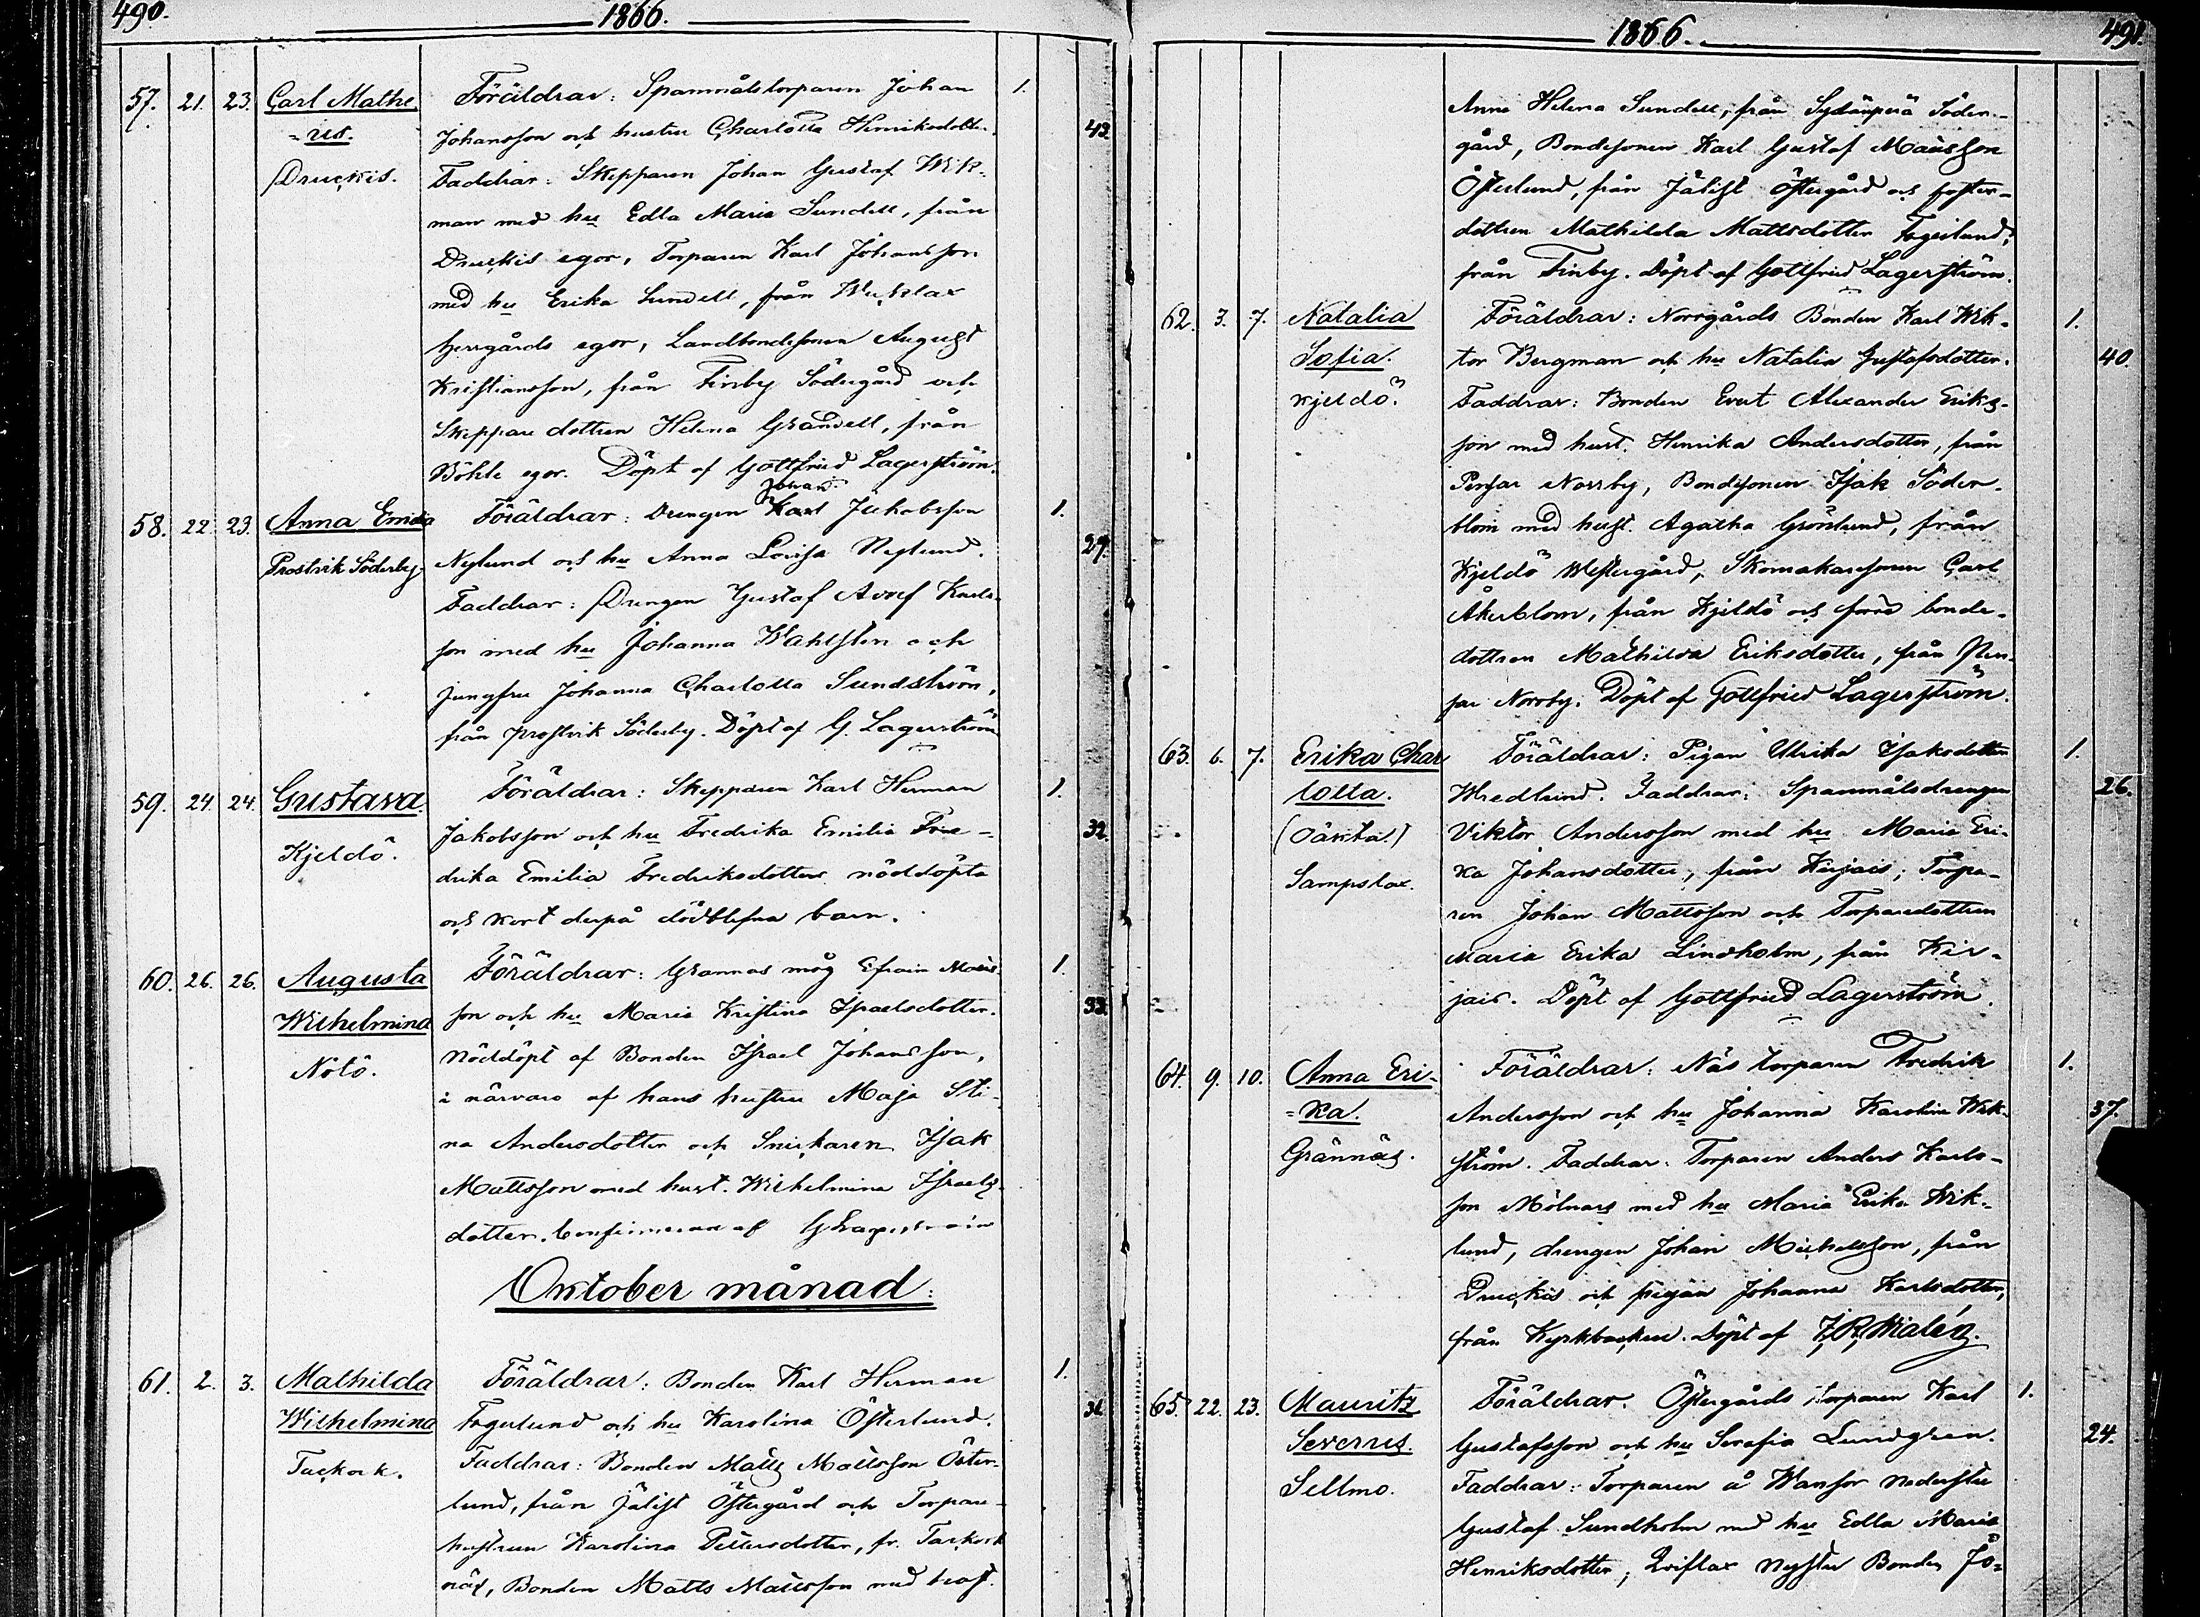 490.
1866.
57. 21. 23. Carl Mathe
=us.
Druckis.
Föräldrar: Spannmålstorparen Johan 1.
Johansson och hustru Charlotta Henriksdotter. 42.
Faddrar: Skepparen Johan Gustaf Wik-
man med hu Edla Maria Sundell, från
Druckis egor, Torparen Karl Johansson
med hu Erika Sundell, från
herrgårds egor, Landbondesonen August
Kristiansson, från Finby Södergård och
Skeppare dottren Helena Grandell, från
Böhle egor. Döpt af Gottfried Lagerström.
58. 22. 23. Anna Emilia
Prostvik Söderby.
Johan
Föräldrar: Drengen Karl Jakobsson 1.
Nylund och hu Anna Lovisa Nylund. 27.
Faddrar: Drengen Gustaf Adolf Karls-
son med hu Johanna Wahlsten och
jungfru Johanna Charlotta Sundström,
från Prostvik Söderby. Döpt af G. Lagerström
59. 24. 24. Gustava.
Kjeldö.
Föräldrar: Skepparen Karl Herman 1.
Jakobsson och hu Fredrika Emilia Fre- 32.
drika Emilia Fredriksdotters nöddöpta
och kort derpå dödblefna barn.
60. 26. 26. Augusta
Wilhelmina
Nötö.
Föräldrar: Grannas måg Efraim Mats- 1.
son och hu Maria Kristina Israelsdotter. 33.
Nöddöpt af Bonden Israel Johansson,
i närvaro af hans hustru Maja Sti-
na Andersdotter och Snickaren Isak
Mattsson med hust. Wilhelmina Israels-
dotter. af G Lagerström
Oktober månad:
61. 2. 3. Mathilda
Wilhelmina
Tackork.
Föräldrar: Bonden Karl Herman 1.
Fagerlund och hu Karolina Österlund. 31.
Faddrar: Bonden Matts Mattsson Öster-
lund, från Jälist Östergård och Torpare-
hustrun Karolina Pettersdotter, fr. Tackork
näs, Bonden Matts Mattsson med hust.
1866.
491.
Anna Helena Sundell, från Sydänperä Söder-
gård, Bondesonen Karl Gustaf Matsson
Österlund, från Jälist Östergård och foster-
dottren Mathilda Mattsdotter Fagerlund,
från Finby. Döpt af Gottfried Lagerström.
62. 3. 7. Natalia
Sofia.
Kjeldö.
Föräldrar: Norrgårds Bonden Karl Wik- 1.
tor Bergman och hu Natalia Gustafsdotter. 40.
Faddrar: Bonden Evert Alexander Eriks-
son med hust. Henrika Andersdotter, från
Pensar Norrby, Bondesonen Isak Söder-
blom med hust. Agatha Grönlund, från
Kjeldö Westergård, Skomakaresonen Carl
Åkerblom, från Kjeldö och förre bonde-
dottren Mathilda Eriksdotter, från Pen-
sar Norrby. Döpt af Gottfried Lagerström.
63. 6. 7. Erika Char
lotta.
(Oäkta.)
Sampslax.
Föräldrar: Pigan Ulrika Isaksdotter 1.
Wredlund. Faddrar: Spannmålsdrengen 26.
Viktor Andersson med hu Maria Eri-
ka Johansdotter, från Kirjais, Torpa-
ren Johan Mattsson och Torparedottren
Maria Erika Lindholm, från Kir-
jais. Döpt af Gottfried Lagerström.
64. 9. 10. Anna Eri-
=ka.
Grännäs.
Föräldrar: Näs torparen Fredrik 1.
Andersson och hu Johanna Karolina Wik- 37.
ström. Faddrar: Torparen Anders Karls-
son Mölnars med hu Maria Erika Wik-
lund, drengen Johan Michelsson, från
Druckis och pigan Johanna Karlsdotter,
från Kyrkbacken. Döpt af F. R. Walén.
65. 22. 23. Mauritz
Severus.
Sellmo.
Föräldrar. Östergårds torparen Karl 1.
Gustafsson och hu Serafia Lundgren. 24.
Faddrar: Torparen å Wansor Nederstu
Gustaf Sundholm med hu Edla Maria
Henriksdotter, Qviflax Nystu Bonden Jo-